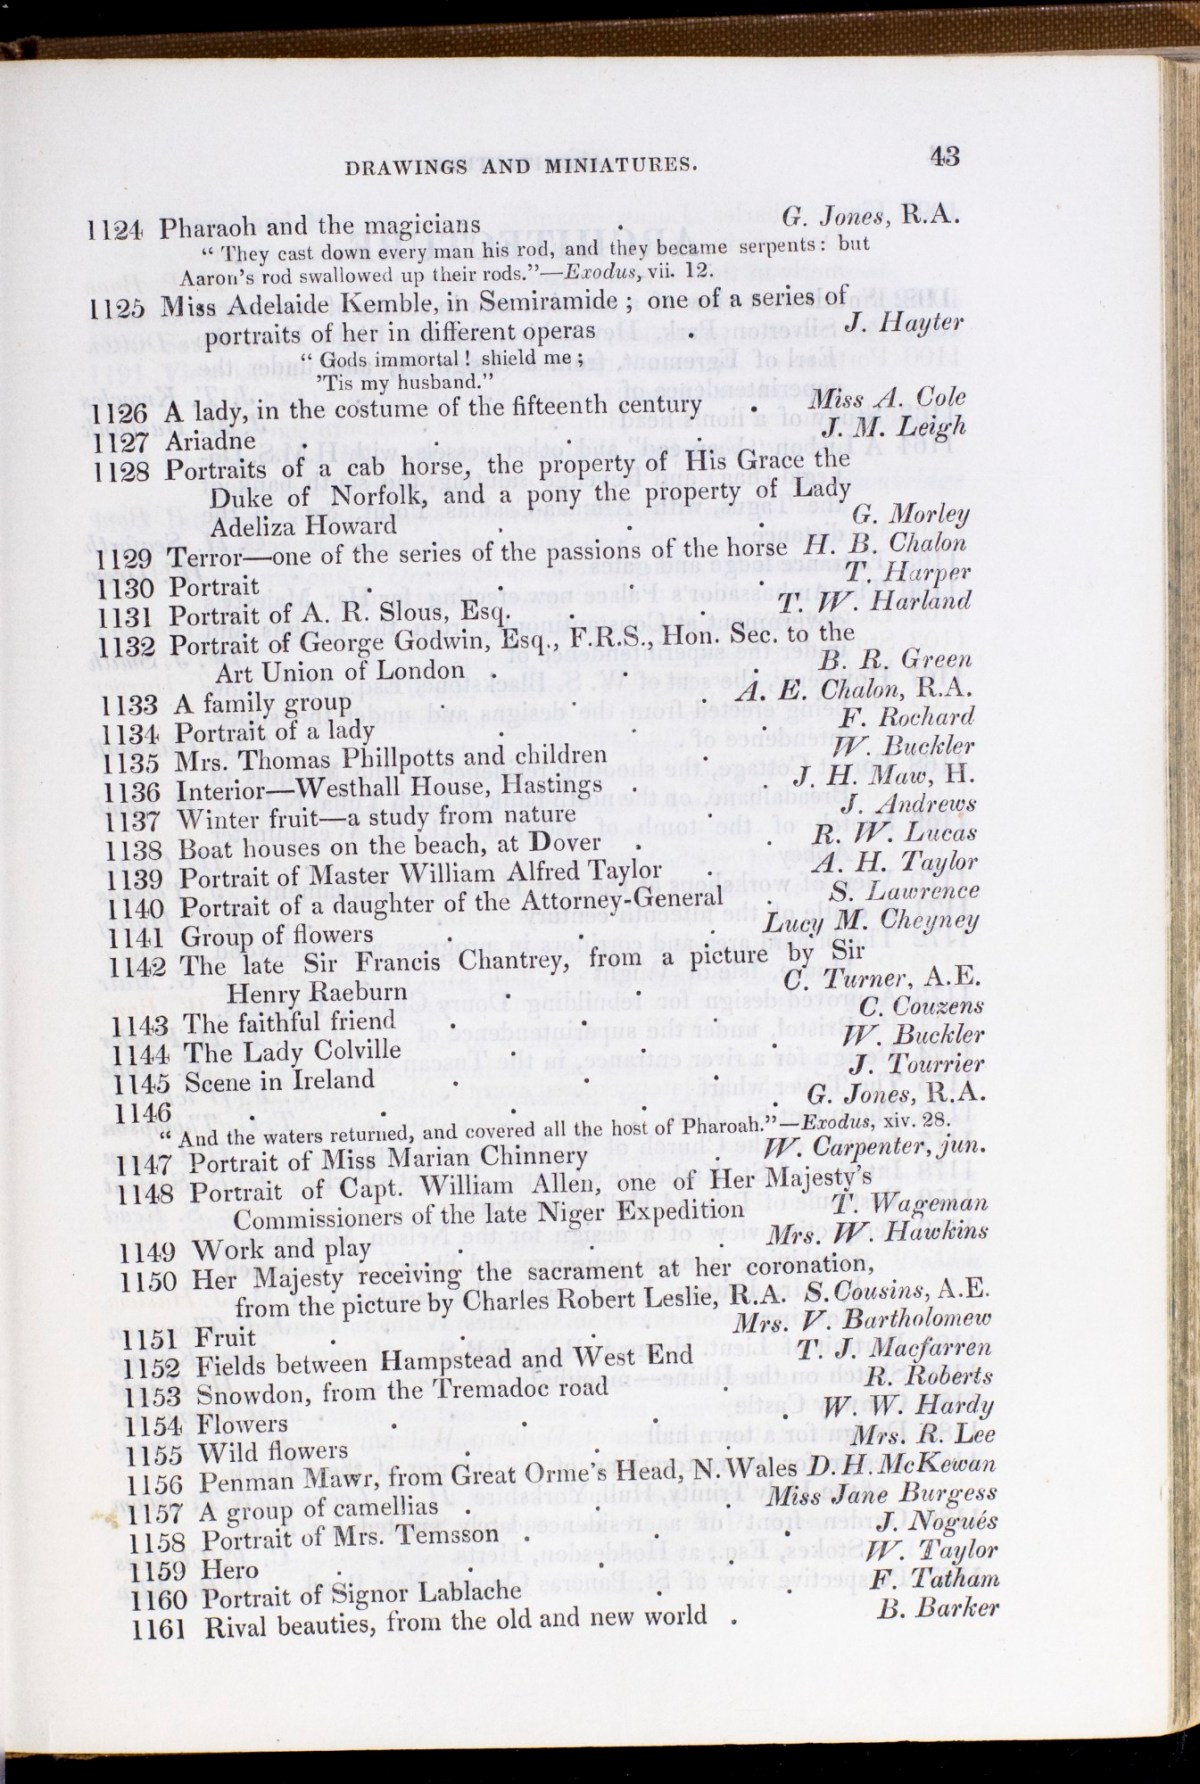 DRAWINGS AND MINIATURES. 43
1124 Pharaoh and the magicians . G. Jones, R.A.
“ They cast down every man his rod, and they became serpents: but
Aaron’s rod swallowed up their rods.”—Exodus, vii. 12.
1125 Miss Adelaide Kemble, in Semiramide ; one of a series of
portraits of her in different operas . J. Hayter
“ Gods immortal ! shield me ;
’Tis my husband.”
1126 A lady, in the costume of the fifteenth century . Miss A. Cole
1127 Ariadne . . . . J. M. Leigh
1128 Portraits of a cab horse, the property of His Grace the
Duke of Norfolk, and a pony the property of Lady
Adeliza Howard . . . G. Morley
1129 Terror—one of the series of the passions of the horse H. B. Chalon
1130 Portrait . . . . T. Harper
1131 Portrait of A. R. Slous, Esq. . . T. W. Harland
1132 Portrait of George Godwin, Esq., F.R.S., Hon. Sec. to the
Art Union of London . . . B. R. Green
1133 A family group . . . A. E. Chalon, R.A.
1134 Portrait of a lady . . . F. Rochard
1135 Mrs. Thomas Phillpotts and children . W. Buckler
1136 Interior—Westhall House, Hastings . . J H. Maw, H.
1137 Winter fruit—a study from nature . J. Andrews
1138 Boat houses on the beach, at Dover . . R. W. Lucas
1139 Portrait of Master William Alfred Taylor . A. H. Taylor
1140 Portrait of a daughter of the Attorney-General . S. Lawrence
1141 Group of flowers . . . Lucy M. Cheyney
1142 The late Sir Francis Chantrey, from a picture by Sir
Henry Raeburn . . . C. Turner, A.E.
1143 The faithful friend . . . C. Couzens
1144 The Lady Colville . . . W. Buckler
1145 Scene in Ireland . . . J. Tourrier
1146 . . . . . G. Jones, R.A.
“ And the waters returned, and covered all the host of Pharoah.”—Exodus, xiv. 28.
1147 Portrait of Miss Marian Chinnery . W. Carpenter, jun.
1148 Portrait of Capt. William Allen, one of Her Majesty’s
Commissioners of the late Niger Expedition T. Wageman
1149 Work and play . . . Mrs. W. Hawkins
1150 Her Majesty receiving the sacrament at her coronation,
from the picture by Charles Robert Leslie, R.A. S. Cousins, A.E.
1151 Fruit . . . . Mrs. V. Bartholomew
1152 Fields between Hampstead and West End T. J. Macfarren
1153 Snowdon, from the Tremadoc road . R. Roberts
1154 Flowers . . . . W. W. Hardy
1155 Wild flowers . . . Mrs. R. Lee
1156 Penman Mawr, from Great Orme’s Head, N. Wales D. H. McKewan
1157 A group of camellias . . Miss Jane Burgess
1158 Portrait of Mrs. Temsson . . . J. Nogués
1159 Hero . . . . W. Taylor
1160 Portrait of Signor Lablache . . F. Tatham
1161 Rival beauties, from the old and new world . B. Barker